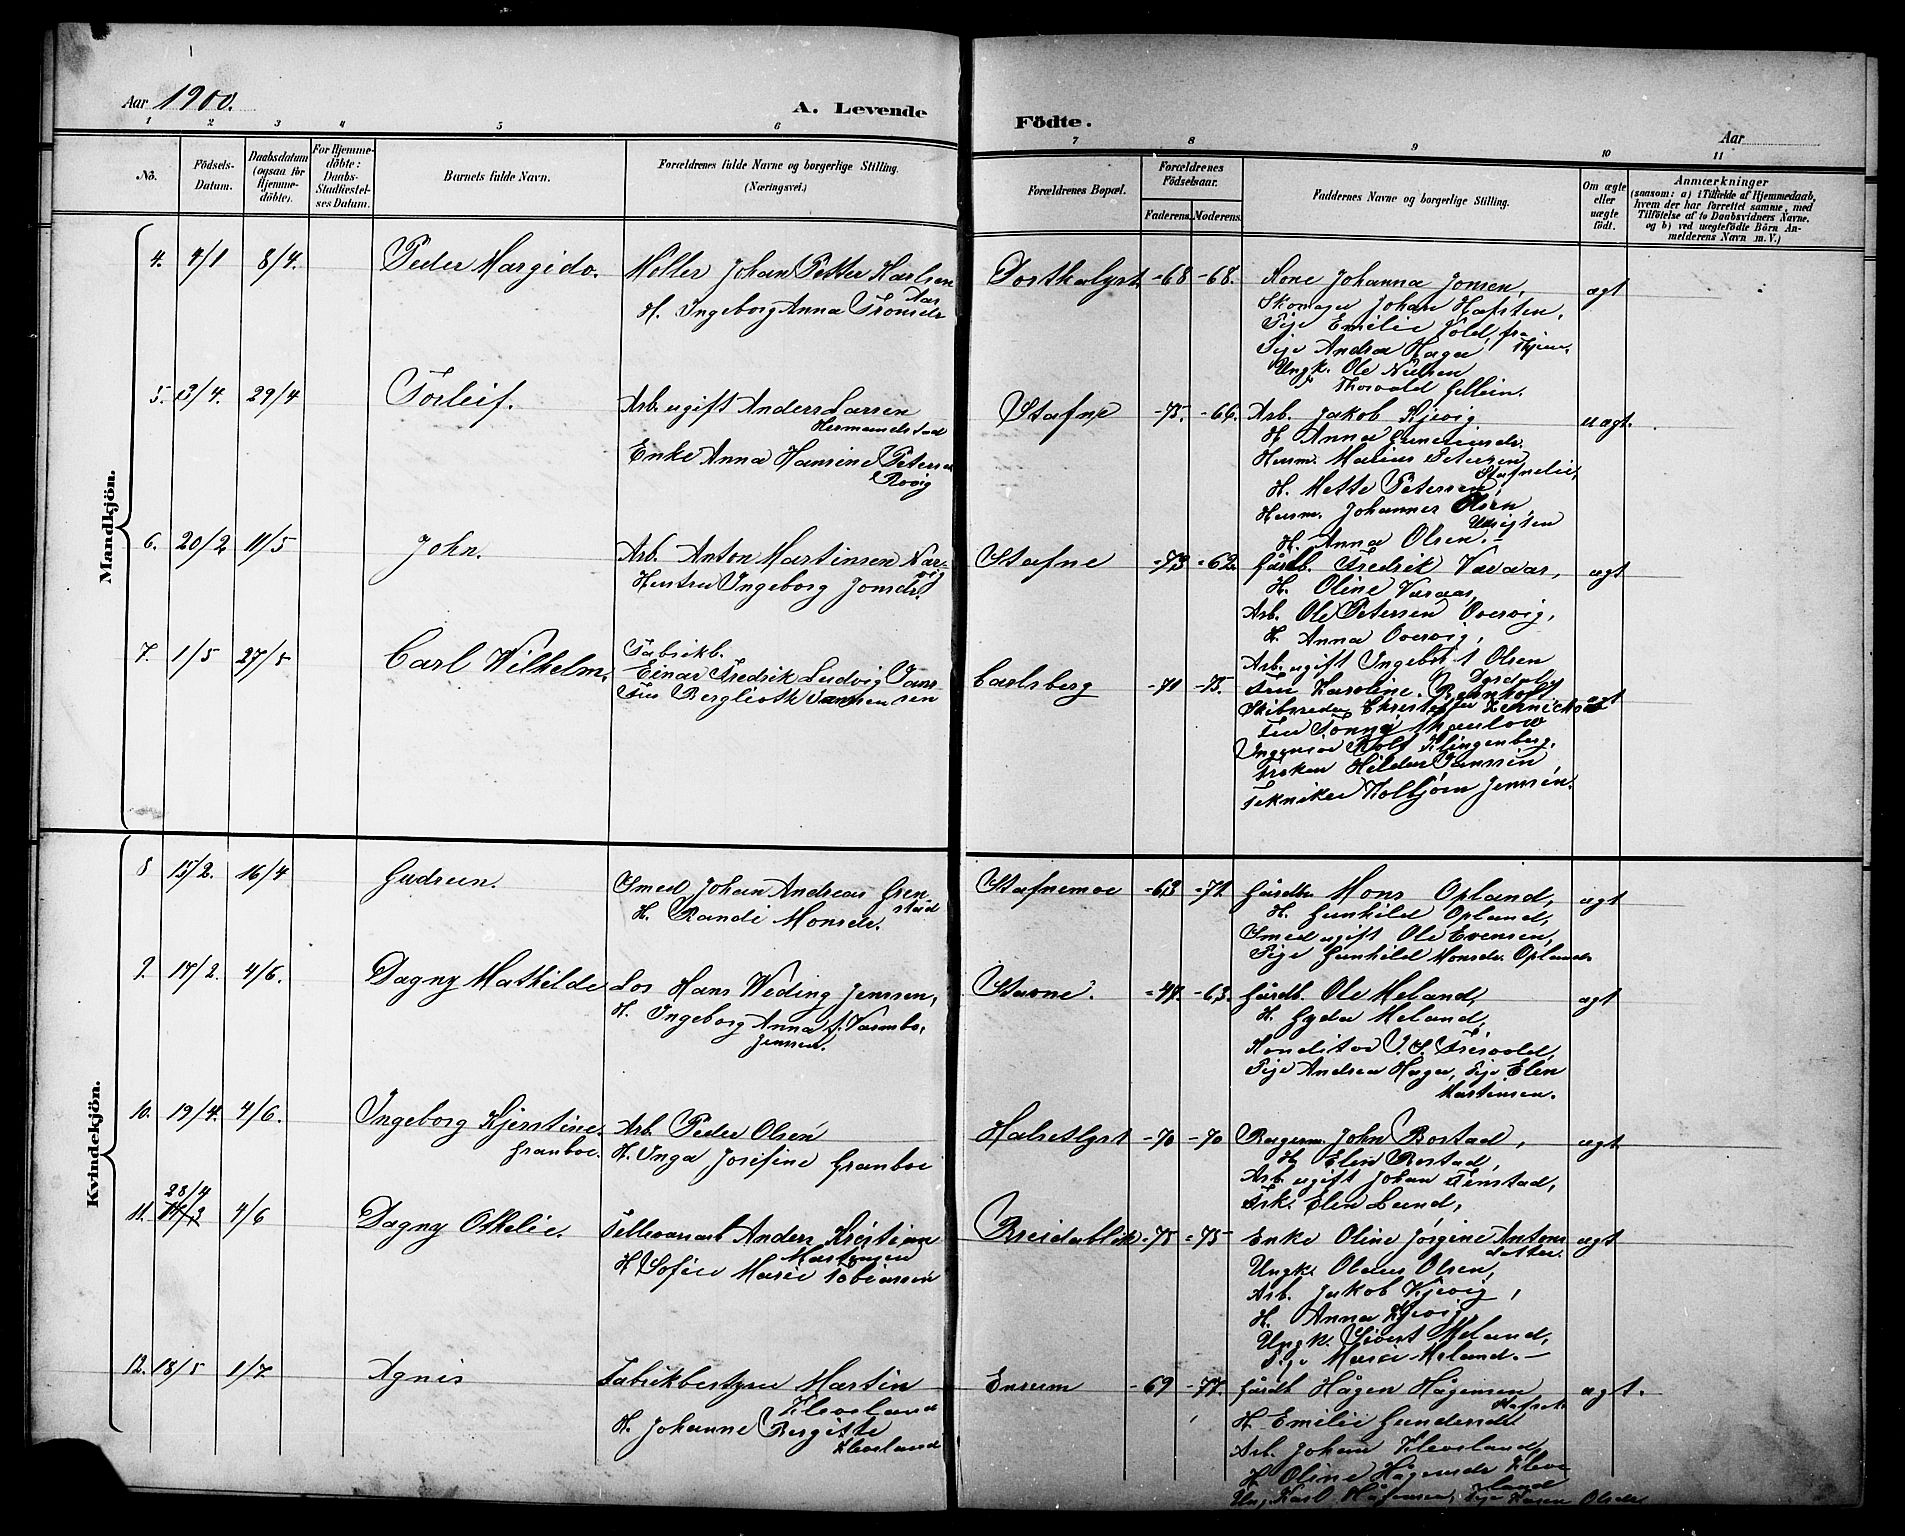 Aar 1900.
A. Levende
Födte.
Aar
1 2 3 4 5 6 7 8 9 10 11
No.
Födsels-Datum.
Daabsdatum (ogsaa for Hjemmedöbte).
For Hjemmedöbte: Daabs-Stadfæstelses Datum.
Barnets fulde Navn.
Forældrenes fulde Navne og borgerlige Stilling.
(Næringsvei.)
Forældrenes Bopæl.
Forældrenes Födselsaar.
Faderens. Moderens.
Faddernes Navne og borgerlige Stilling.
Om ægte eller uægte födt.
Anmærkninger
(saasom: a) i Tilfælde af Hjemmedaab, hvem der har forrettet samme, med Tilföielse af to Daabsvidners Navne. og b) ved uægtefödte Börn Anmelderens Navn m.V.)
Mandkjön.
4. 4/1 8/4. Peder Margido. Möller Johan Petter Karlsen
Aas
H. Ingeborg Anna Tronsdr
-68 -68. Kone Johanna Jonsen, ægt
Skomager Johan Hafsten,
Pige Emilie Jöld, fra
Pige Andrea Haga
Ungk. Ole Nielsen
Thorvald Gellein.
5. 13/4. 29/4 Torleif. Arb. ugift Anders Larsen
Hermandstad
Enke Anna Hansine Petersen
Rovig
Stafne -75. -66. Arb. Jakob Kjevig uægt.
H. Anna
Husm. Marius Petersen
Stafnelie,
H. Mette Petersen,
Husm. Johannes Olsen,
H. Anna Olsen.
6. 20/2 11/5 John. Arb. Anton Martinsen Narvig
Hustru Ingeborg Jonsdr.
Stafne -73 -62. Gårdb. FredrikVæraas, ægt
H. Oline Væraas,
Arb. Ole Petersen Overvig,
H. Anna Overvig,
Arb. ugift Ingebor t Olsen
7. 1/5 27/5 Carl Wilhelm. Fabrikb.
Einar Fredrik Ludvig Janssen
Fru Berglioth Janssen
Carlsberg -71 -75. Fru Karoline. ægt
Skibsreder
Fru Tonny Thaulow
Ingeniør Rolf Klingenberg,
Frøken Hilda Janssen
Tekniker Kolbjörn Jenssen.
Kvindekjön.
8 15/2. 16/4 Gudrun. Smed Johan Andreas Grenstad
H. Randi Monsdr.
Stafnemoe -63 -71. Gårdbr. Mons Opland, ægt
H. Gunhild Opland,
Smed ugift Ole Evensen,
Pige Gunhild Monsdr. Opland.
9. 14/2. 4/6. Dagny Mathilde Los Hans Weding Jenssen,
H. Ingeborg Anna f. Varmbo,
Jenssen.
Stavne. -44. -63. Gårdb. Ole Meland, ægt
H. Gyda Meland,
Konditor J. S. Trisvold,
Pige Andrea Haga, Pige Elen
Martinsen.
10. 19/4. 4/6. Ingeborg Kjerstine
Granboe.
Arb. Peder Olsen
H. Inga Josefine Granboe
Halsetlyst -70 -70 Bogerm. John Rostad, ægt
H. Elen Rostad,
Arb. ugift Johan Finstad,
Frk. Elen Lund,
11. 28/4 4/6 Dagny Othelie. Tellovsarb Anders Kristian
Mortensen
H Sofie Marie Tobiassen
Breidablik -75 -75 Enke Oline Jörgine Antons ægt
datter
Ungk. Olaus Olsen,
Arb. Jakob Kjevig,
H. Anna Kjevig
Ungk. Sivert Meland,
Pige Marie Meland.-
12. 18/5 1/7 Agnes Fabrikbestyrer Martin
Kleveland
H. Johanne Bergitte
Kleveland
Enrum -69 -77. Gårdb Hågen Hågensen ægt.
H. Emilie Gundersdr
Arb. Johan Kleveland,
H. Oline Hågensdr Kleveland
Ung. Karl Hågensen, Pige Karen Olsdr